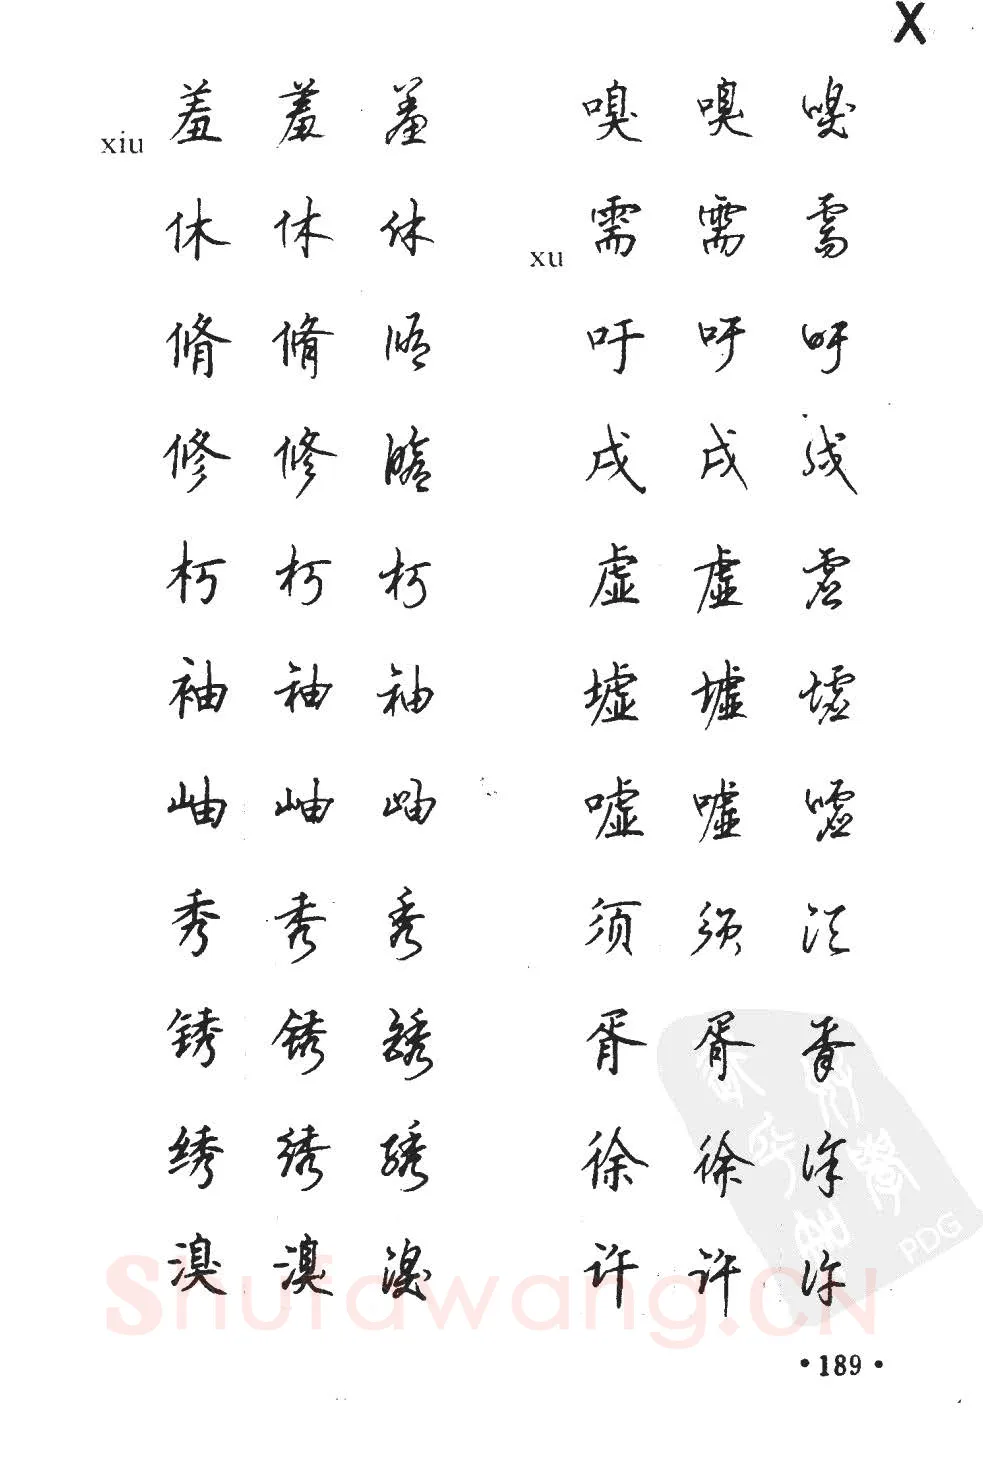 X
xiu 羞 羞 羞
休 休 休
脩 脩 脩
修 修 修
朽 朽 朽
袖 袖 袖
岫 岫 岫
秀 秀 秀
锈 锈 锈
绣 绣 绣
溴 溴 溴
嗅 嗅 嗅
xu 需 需 需
吁 吁 吁
戌 戌 戌
虚 虚 虚
墟 墟 墟
嘘 嘘 嘘
须 须 须
胥 胥 胥
徐 徐 徐
许 许 许
PDG
Shufawang.CN
•189•